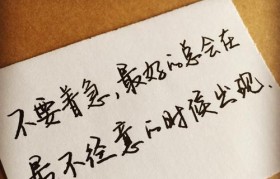 不要着急，最好的总会在
最不经意的时候出现.